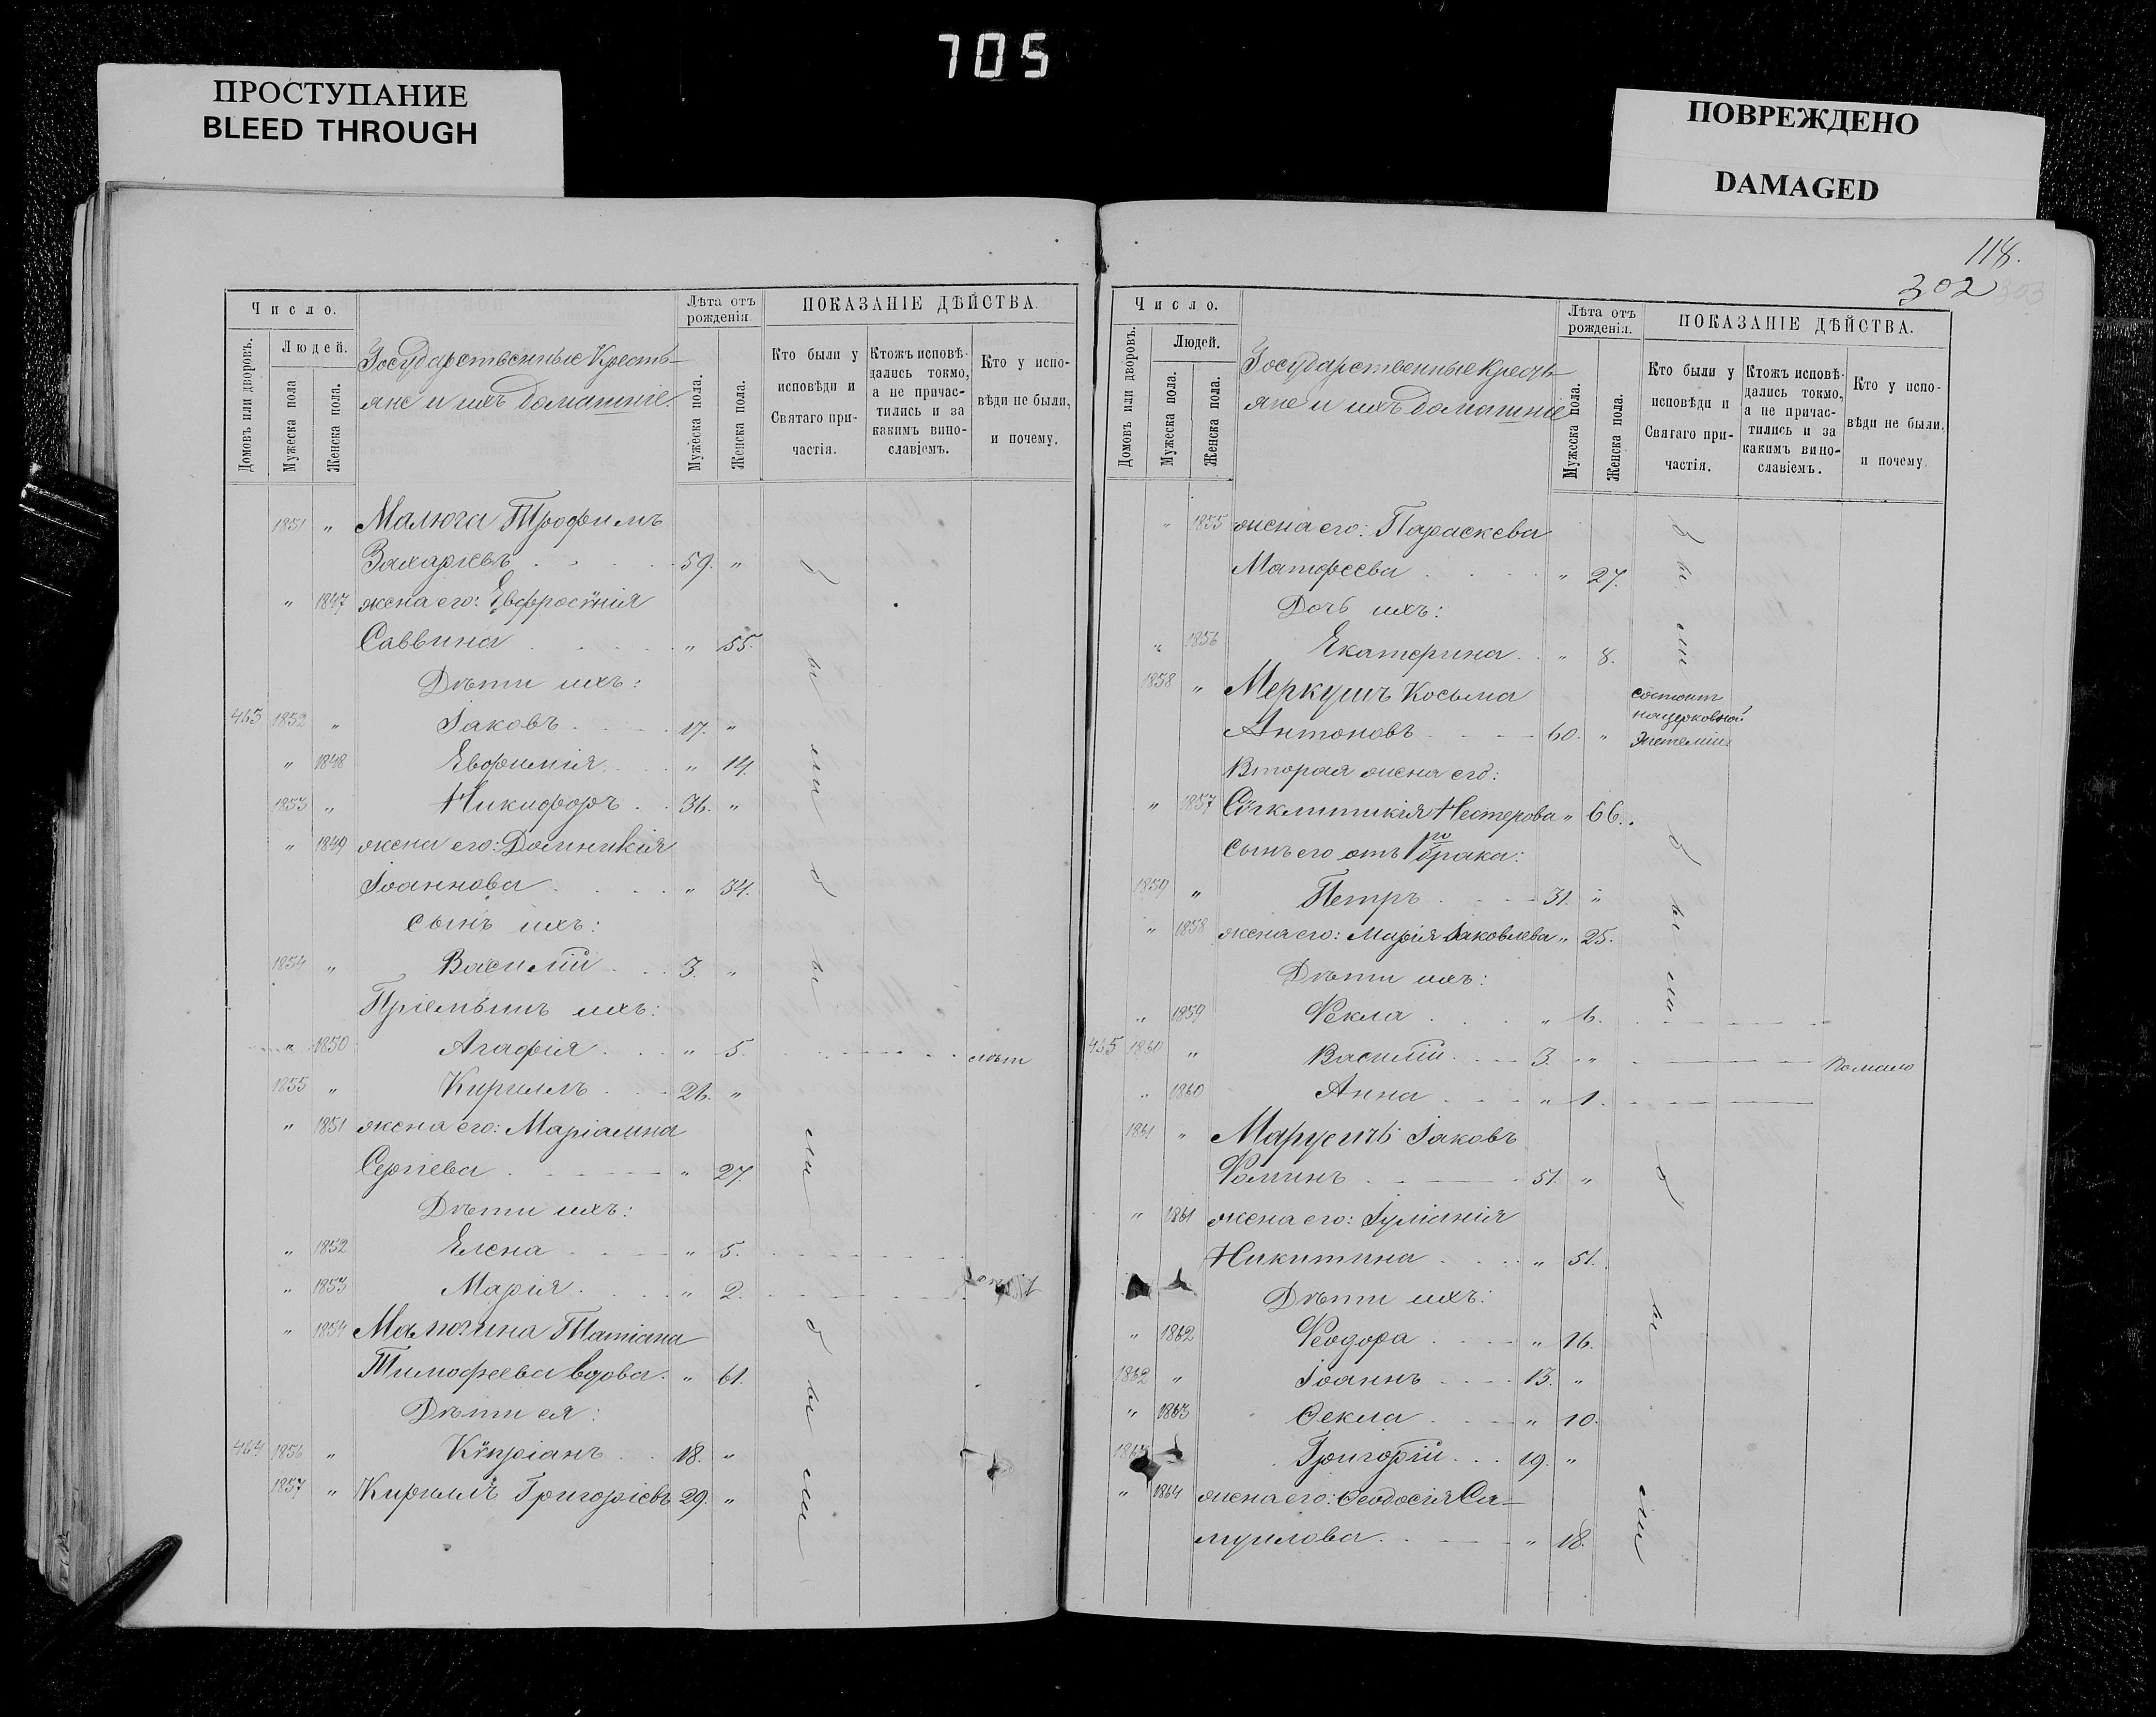 705
ПРОСТУПАНИЕ
BLEED THROUGH
ПОВРЕЖДЕНО
DAMAGED
Число.
Домовъ или дворовъ.
Людей.
Мужеска пола
Женска пола.
Государственные Кресть-
яне и ихъ домашніе.
Лѣта отъ рожденія.
Мужеска пола.
Женска пола.
ПОКАЗАНІЕ ДѢЙСТВА.
Кто были у исповѣди и Святаго при-частія.
Ктожъ исповѣ-дались токмо, а не причас-тились и за какимъ вино-славіемъ.
Кто у испо-вѣди не были, и почему.
1851 " Малюга Трофимъ
Захаріевъ 59. "
" 1847 жена его: Евфросѵнія
Саввина " 55.
Дѣти ихъ:
463 1852 " Іаковъ 17. "
" 1848 Евфимія " 14.
1853 " Никифоръ 36. "
" 1849 жена его: Домникія
Іоаннова " 34.
сынъ ихъ:
1854 " Василій 3. "
Пріемыши ихъ:
" 1850 Агафія " 5.
1855 " Кириллъ 26. "
" 1851 жена его: Маріамна
Сергіева " 27.
Дѣти ихъ:
" 1852 Елена " 5.
" 1853 Марія " 2.
" 1854 Малюгина Татіана
Тимофеева вдова " 61.
Дѣти ея:
464 1856 " Кѵпріанъ 18. "
1857 " Кириллъ Григоріевъ 29. "
были
были
были
лѣт
118.
302 303
Число.
Домовъ или дворовъ.
Людей.
Мужеска пола.
Женска пола.
Государственные Кресть-
яне и ихъ домашніе
Лѣта отъ рожденія.
Мужеска пола.
Женска пола.
ПОКАЗАНІЕ ДѢЙСТВА.
Кто были у исповѣди и Святаго при-частія.
Ктожъ исповѣ-дались токмо, а не причас-тились и за какимъ вино-славіемъ.
Кто у испо-вѣди не были, и почему.
" 1855 жена его: Параскева
Матфеева " 27.
Дочь ихъ:
" 1856 Екатерина " 8.
были
1858 " Меркушъ Косьма
Антоновъ 60. "
состоит
на церковной
Эпитеміи
Вторая жена его:
" 1857 Сѵгклитикія Нестерова " 66.
сынъ его отъ 1го брака:
1859 " Петръ 31. "
" 1858 жена его: Марія Іаковлева " 25.
были
Дѣти ихъ:
" 1859 Ѳекла " 6.
465 1860 " Василій 3. " Помало
" 1860 Анна " 1.
1861 " Марусичъ Іаковъ
Ѳоминъ 51. "
" 1861 жена его: Іуліанія
Никитина " 51.
Дѣти ихъ:
" 1862 Ѳеодора " 16.
1862 " Іоаннъ 13. "
" 1863 Ѳекла " 10.
Григорій 19. "
" 1864 жена его: Ѳеодосія Са-
муилова " 18.
были